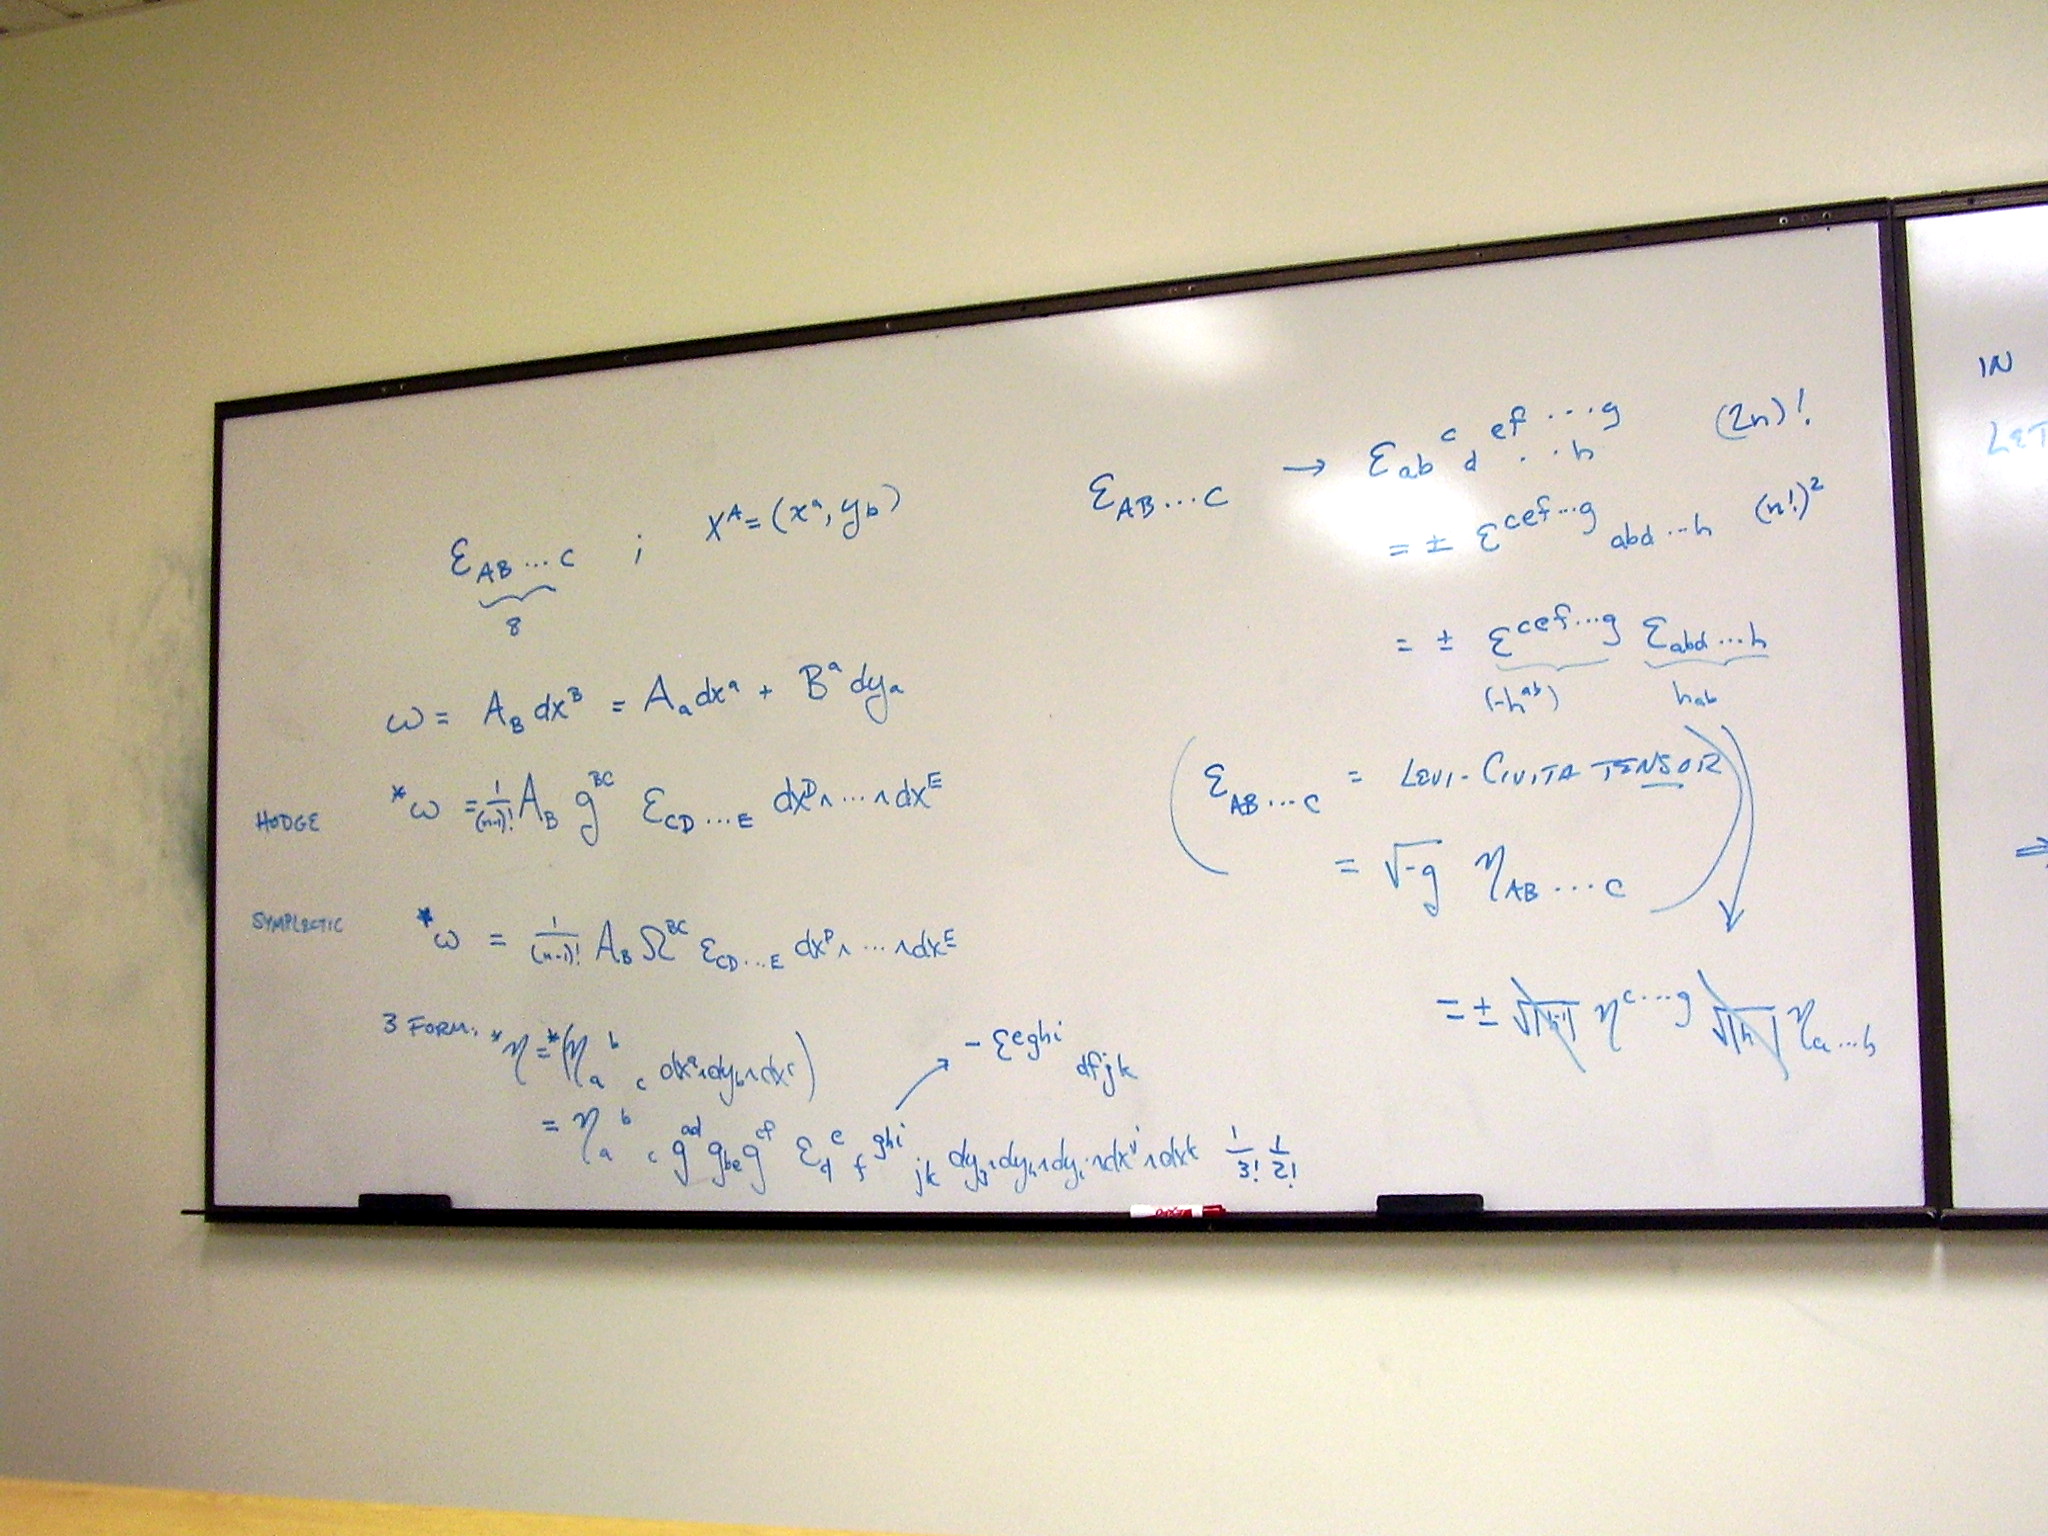 ε_{AB...C} ; X^A = (x^a, y_b)
8
ω = A_B dx^B = A_a dx^a + B^a dy_a
HODGE *ω = 1/(n-1)! A_B g^{BC} ε_{CD...E} dx^D ∧ ... ∧ dx^E
SYMPLECTIC *ω = 1/(n-1)! A_B Ω^{BC} ε_{CD...E} dx^D ∧ ... ∧ dx^E
3 FORM: *η = *(η_a^b_c dx^a ∧ dy_b ∧ dx^c)
= η_a^b_c g^{ad} g_{be} g^{cf} ε_d^e_f^{ghi}_{jk} dy_g ∧ dy_h ∧ dy_i ∧ dx^j ∧ dx^k 1/3! 1/2!
- ε^{eghi}_{dfjk}
ε_{AB...C} → ε_{ab}^c_d^{ef...g}_{...h} (2n)!
= ± ε^{cef...g}_{abd...h} (n!)^2
= ± ε^{cef...g} ε_{abd...h}
(-h^{ab}) h_{ab}
(ε_{AB...C} = LEVI-CIVITA TENSOR
= √-g η_{AB...C})
= ± √|h^{-1}| η^{c...g} √|h| η_{a...h}
IN
LET
⇒